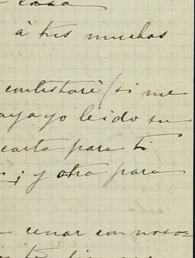 casa
à tus muchas
contestaré (si me
yo leido su
carta para ti
; y otra para
cenar con noso